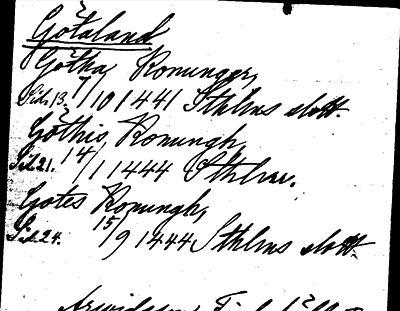 Götaland
Götha Konunger,
Sid. 13. 7/10 1441 Sthlms slott.
Göthis Konungh,
Sid. 21. 14/1 1444 Sthlm.
Gotes Konungh,
Sid. 24. 15/9 1444 Sthlms slott.